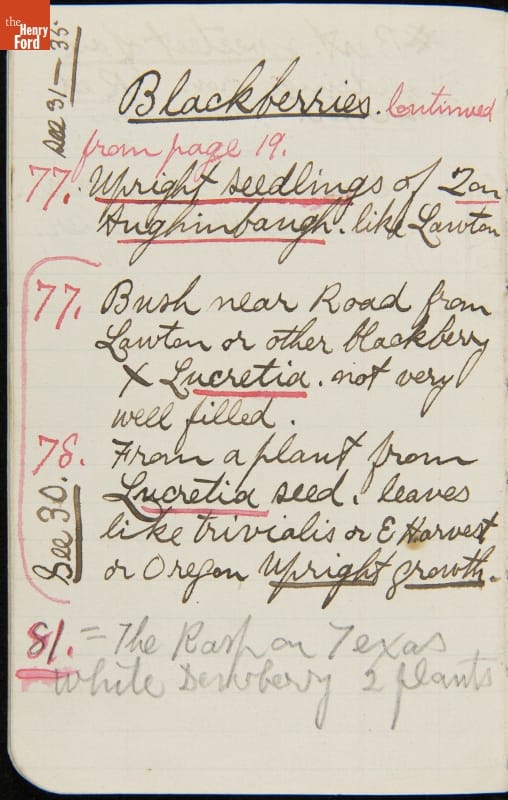 the
Henry
Ford
see 31-35
Blackberries. Continued
from page 19.
77. Upright seedlings of Zon
Aughinbaugh. like Lawton
77. Bush near Road from
Lawton or other blackberry
X Lucretia. not very
well filled.
78. From a plant from
Lucretia seed. leaves
like trivialis or E Harvest
or Oregon Upright growth.
See 30.
81. = The Rasp on Texas
White Dewberry 2 plants